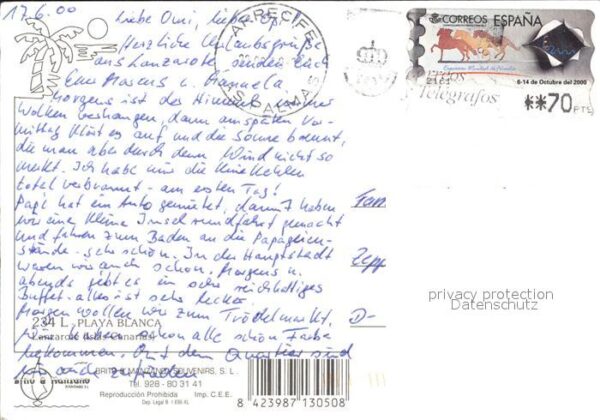 17.6.00
Liebe Omi, lieber Opi!
Herzliche Urlaubsgrüße
aus Lanzarote senden Euch
Eure Marcus u. Manuela
Morgens ist der Himmel immer
Wolken behangen, dann am späten Vor-
mittag klärt es auf und die Sonne brennt,
die man aber durch den Wind nicht so
merkt. Ich habe mir die Kniekehlen
total verbrannt - am ersten Tag!
Papi hat ein Auto gemietet, damit haben
wir eine kleine Inselrundfahrt gemacht
und fahren zum Baden an die Papageien-
strände - sehr schön. In der Hauptstadt
waren wir auch schon. Morgens u.
abends gibt es ein sehr reichhaltiges
Buffet - alles ist sehr lecker.
Morgen wollen wir zum Trödelmarkt.
haben schon alle schön Farbe
bekommen. Mit dem Quartier sind
wir zufrieden
Fam
Zepp
D-
ARRECIFE
LAS PALMAS
CORREOS ESPAÑA
6-14 de Octubre del 2000
**70 PTS
Telégrafos
privacy protection
Datenschutz
234 L. PLAYA BLANCA
Lanzarote (Islas Canarias)
BRITO & MANZANO SOUVENIRS, S. L.
Tel. 928 - 80 31 41
Reproducción Prohibida Imp. C.E.E.
8 423987 130508